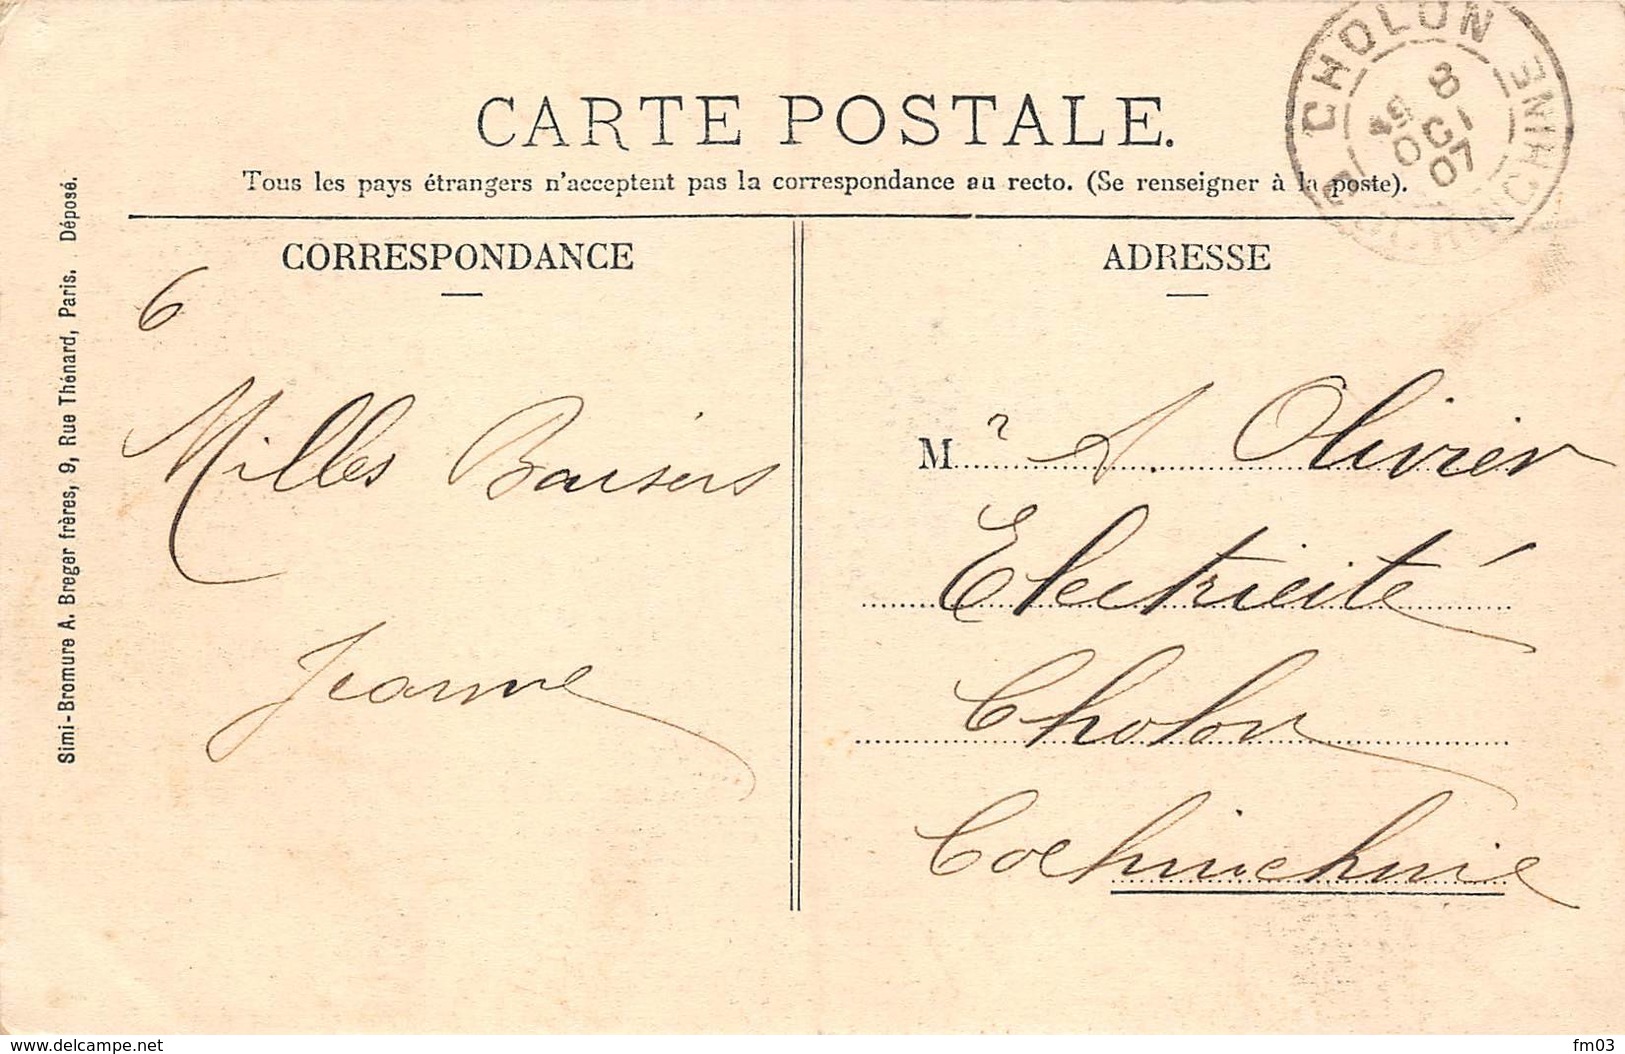 CARTE POSTALE.
Tous les pays étrangers n'acceptent pas la correspondance au recto. (Se renseigner à la poste).
CHOLON
COCHINCHINE
8
OCT
07
Simi-Bromure A. Breger frères, 9, Rue Thénard, Paris. Déposé.
CORRESPONDANCE
6
Milles Baisers
Jeanne
ADRESSE
Mr A. Olivier
Electricité
Cholon
Cochinchine
delcampe.net
fm03